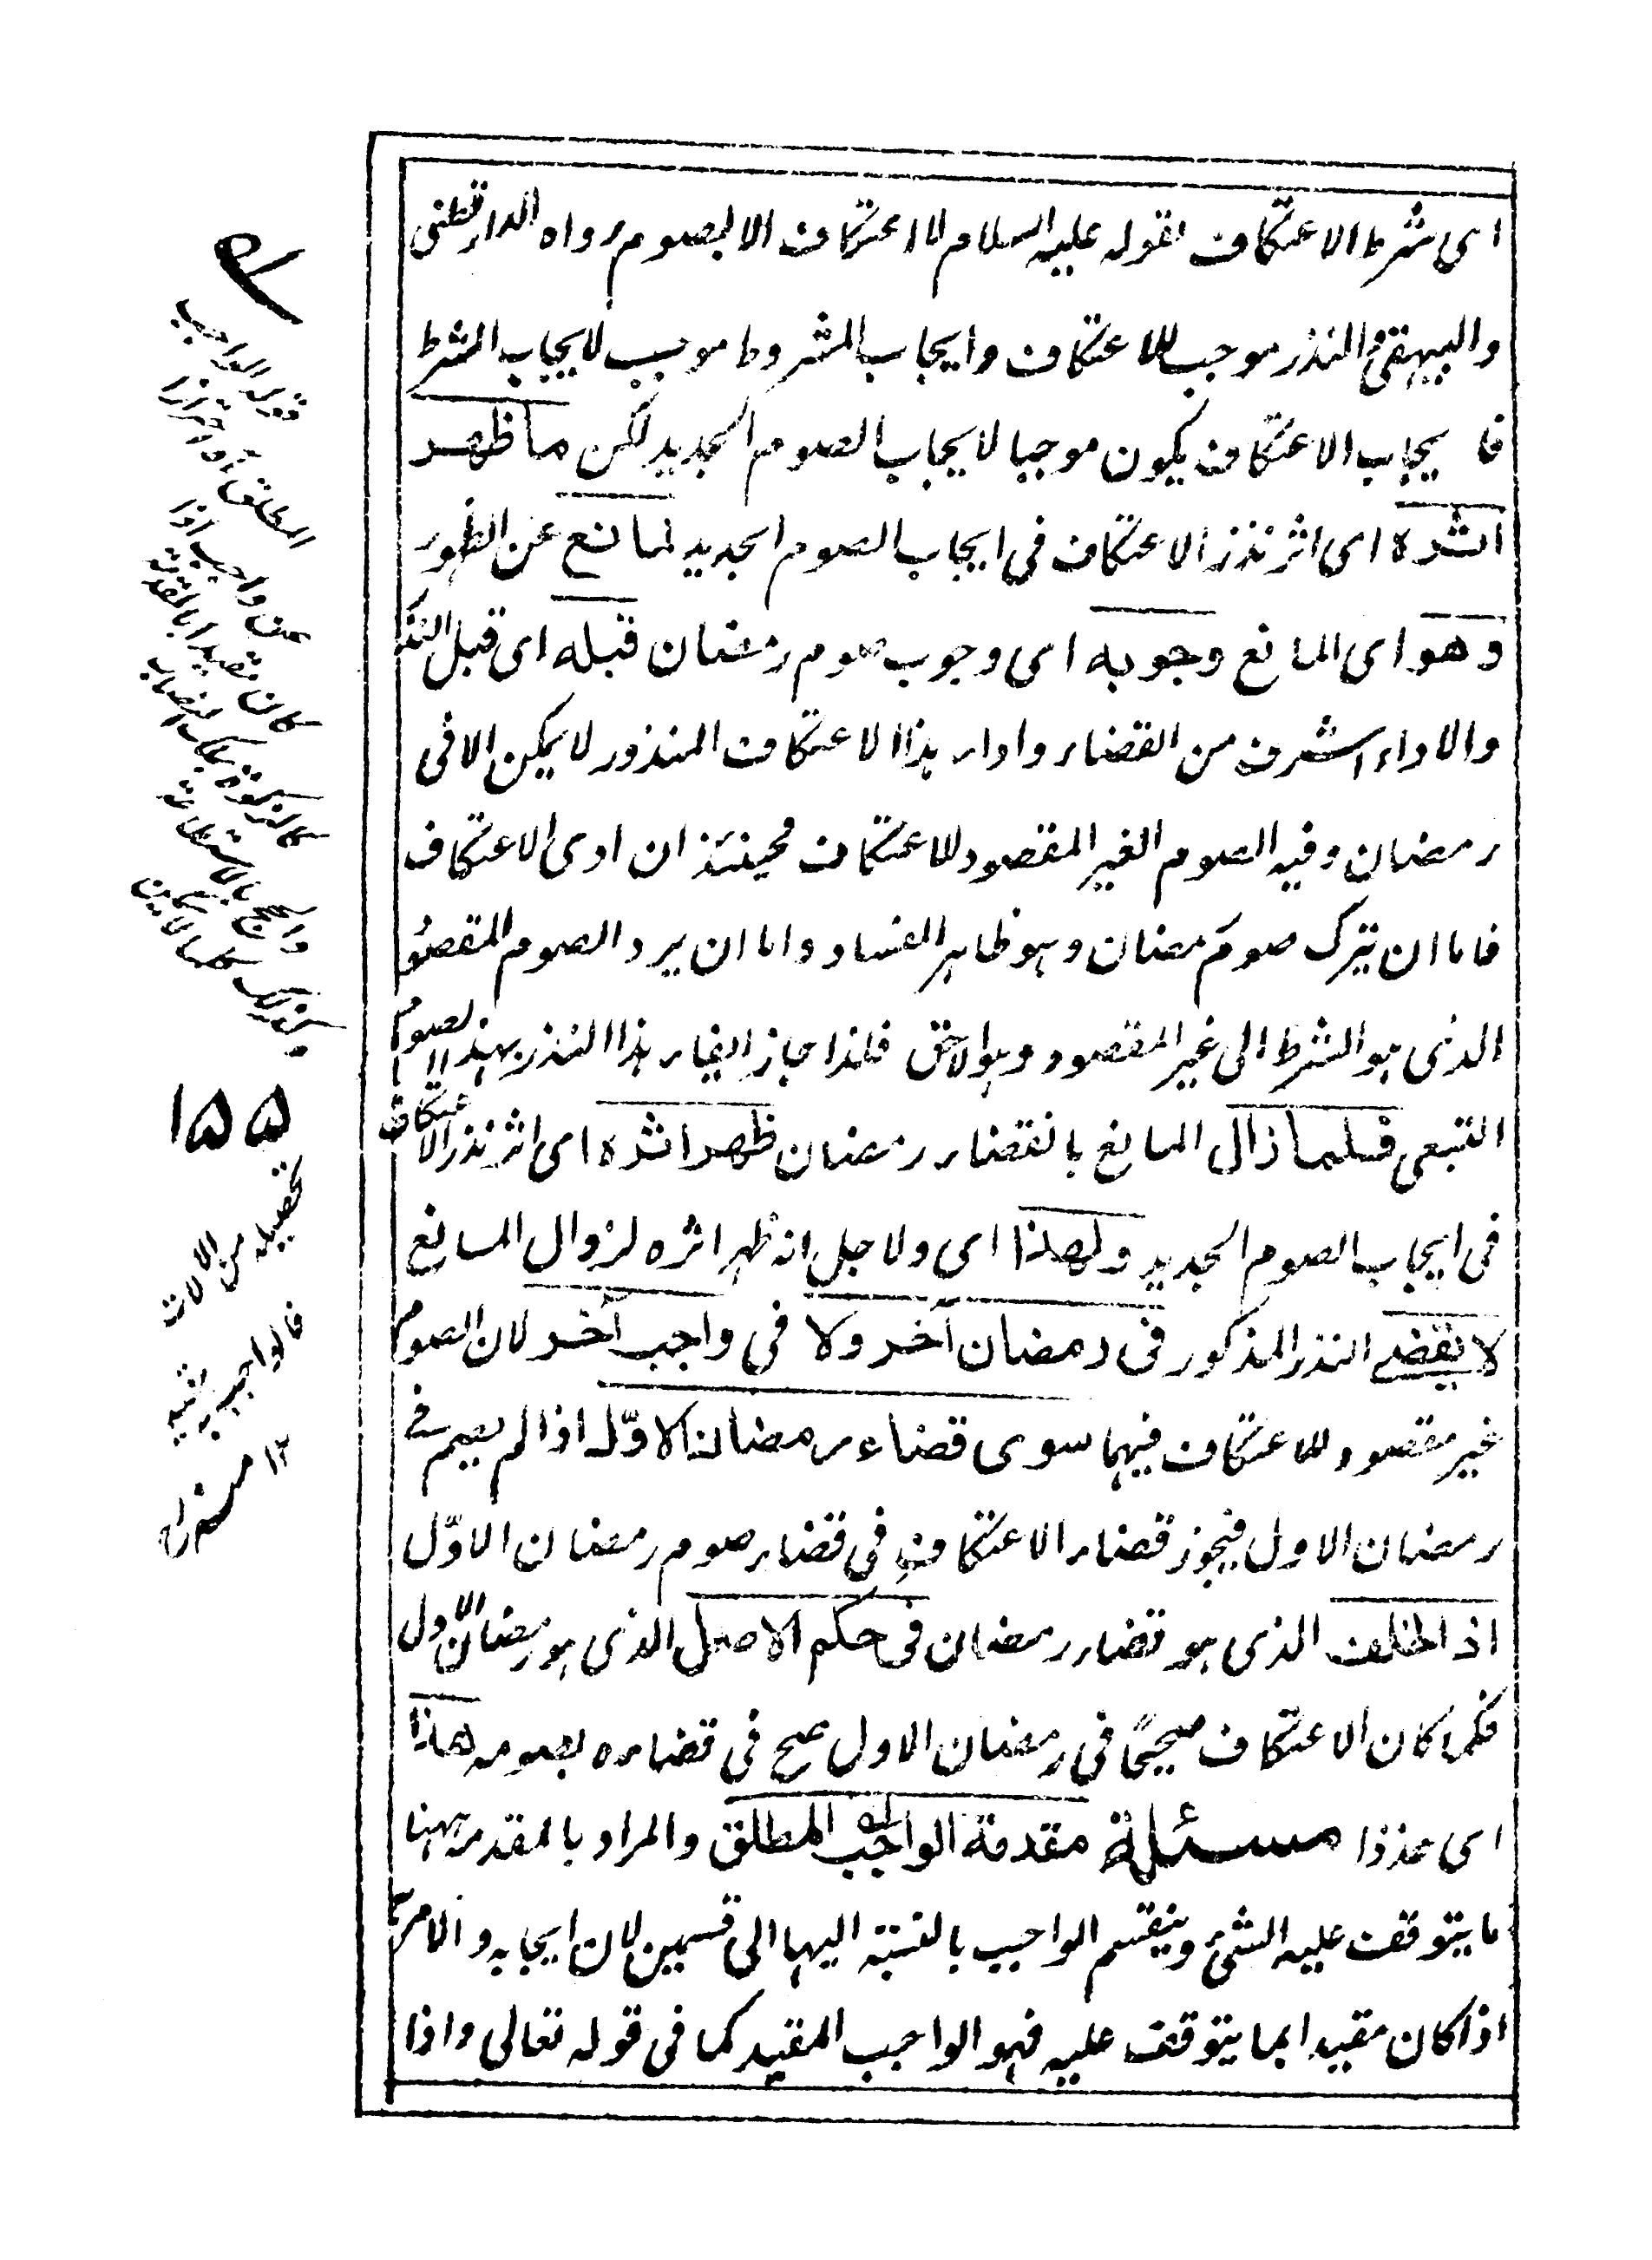 اى شرط الاعتكاف لقوله عليه السلام لا اعتكاف الا بالصوم رواه الدارقطنى
والبيهقى والنذر موجب للاعتكاف وايجاب المشروط موجب لايجاب الشرط
فايجاب الاعتكاف يكون موجبا لايجاب الصوم الجديد لكن ما ظهر
اثره اى اثر نذر الاعتكاف فى ايجاب الصوم الجديد لمانع عن الظهور
وهو اى المانع وجوبه اى وجوب صوم رمضان قبله اى قبل النذر
والاداء اشرف من القضاء واداء هذا الاعتكاف المنذور لا يمكن الا فى
رمضان وفيه الصوم الغير المقصود للاعتكاف فحينئذ ان ادى الاعتكاف
فاما ان يترك صوم رمضان وهو ظاهر الفساد واما ان يرد الصوم المقصود
الذى هو الشرط الى غير المقصود وهو لاحق فلذا جاز ايفاء هذا النذر بهذا الصوم
التبعى فلما زال المانع بانقضاء رمضان ظهر اثره اى اثر نذر الاعتكاف
فى ايجاب الصوم الجديد ولهذا اى ولاجل انه ظهر اثره لزوال المانع
لا يقضى النذر المذكور فى رمضان آخر ولا فى واجب آخر لان الصوم
غير مقصود للاعتكاف فيهما سوى قضاء رمضان الاول اذا لم يصم فى
رمضان الاول فيجوز قضاء الاعتكاف فى قضاء صوم رمضان الاوّل
اذ الخلف الذى هو قضاء رمضان فى حكم الاصل الذى هو رمضان الاول
فكما كان الاعتكاف صحيحًا فى رمضان الاول صح فى قضاءه بصومه هذا
اى خذ ذا مسئلة مقدمة الواجب المطلق والمراد بالمقدمة ههنا
ما يتوقف عليه الشئ وينقسم الواجب بالنسبة اليها الى قسمين لان ايجابه والامر به
اذا كان مقيدا بما يتوقف عليه فهو الواجب المقيد كما فى قوله تعالى واذا
قوله الواجب
المطلق احترازا
عن واجب اذا
كان مقيدا بالمقدمة
كالزكوة بملك النصاب
والحج بالاستطاعة
١٥٥
تحصيله من الالات
فالواجب
١٢ منه